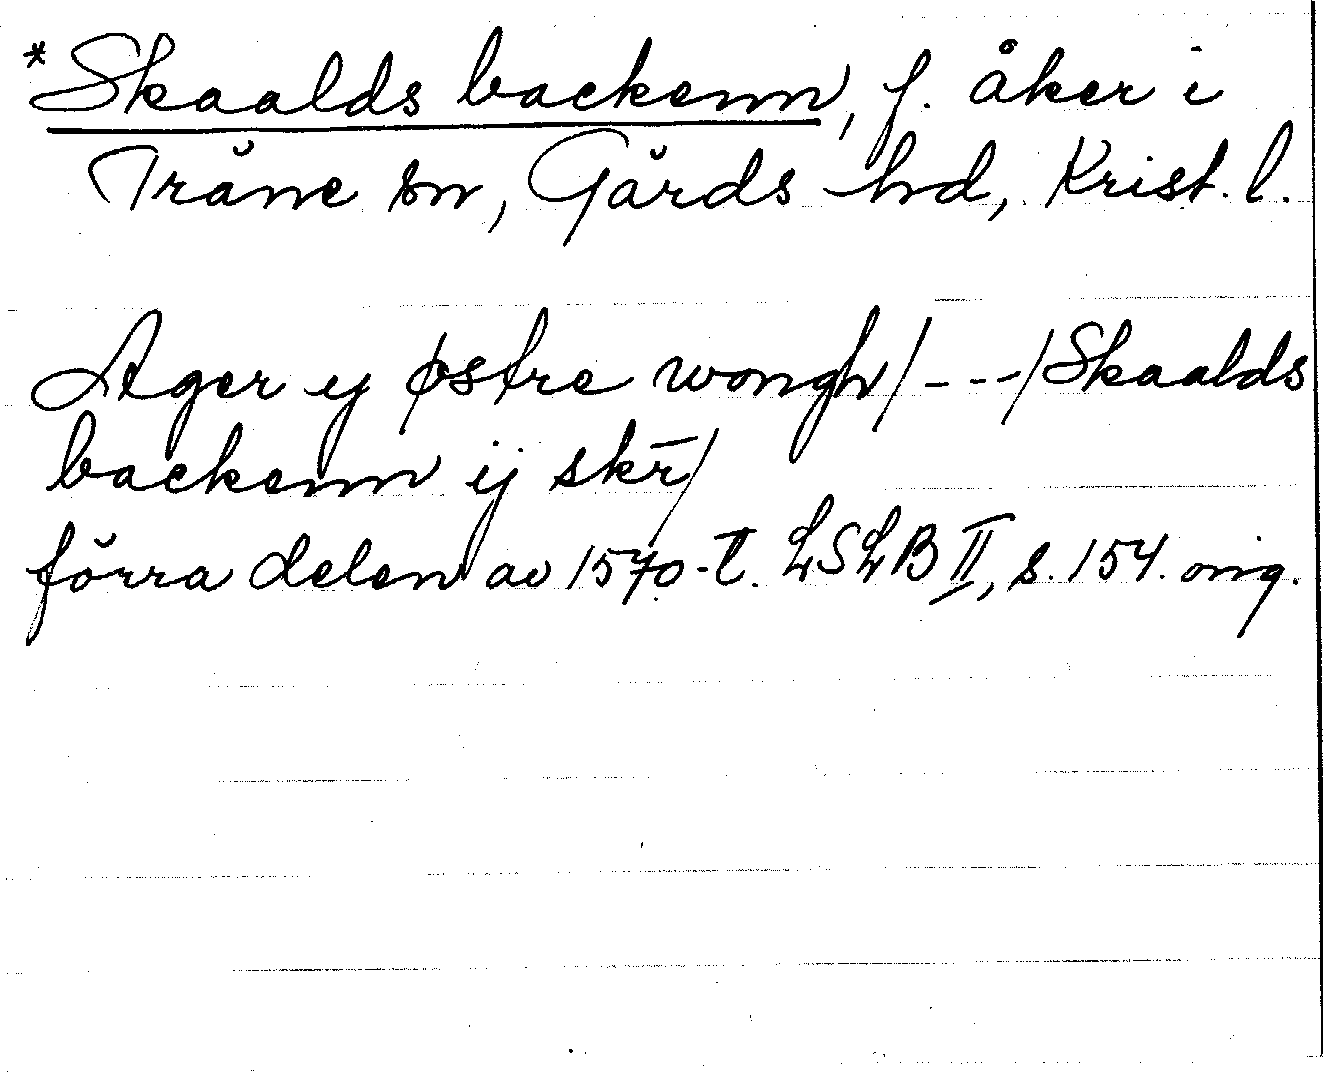 *Skaalds backenn, f. åker i
Träne sn, Gärds hd, Krist. l.
Ager ij østre wongh/---/Skaalds
backenn ij skr̄/
förra delen av 1570-t. LSLB II, s. 154. orig.